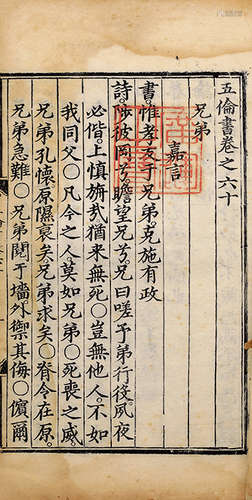 五倫書卷之六十
兄弟
嘉言
書惟孝友于兄弟克施有政
詩陟彼岡兮瞻望兄兮兄曰嗟予弟行役夙夜
必偕上慎旃哉猶來無死○豈無他人不如
我同父○凡今之人莫如兄弟○死喪之威
兄弟孔懷原隰裒矣兄弟求矣○脊令在原
兄弟急難○兄弟鬩于墻外禦其侮○儐爾